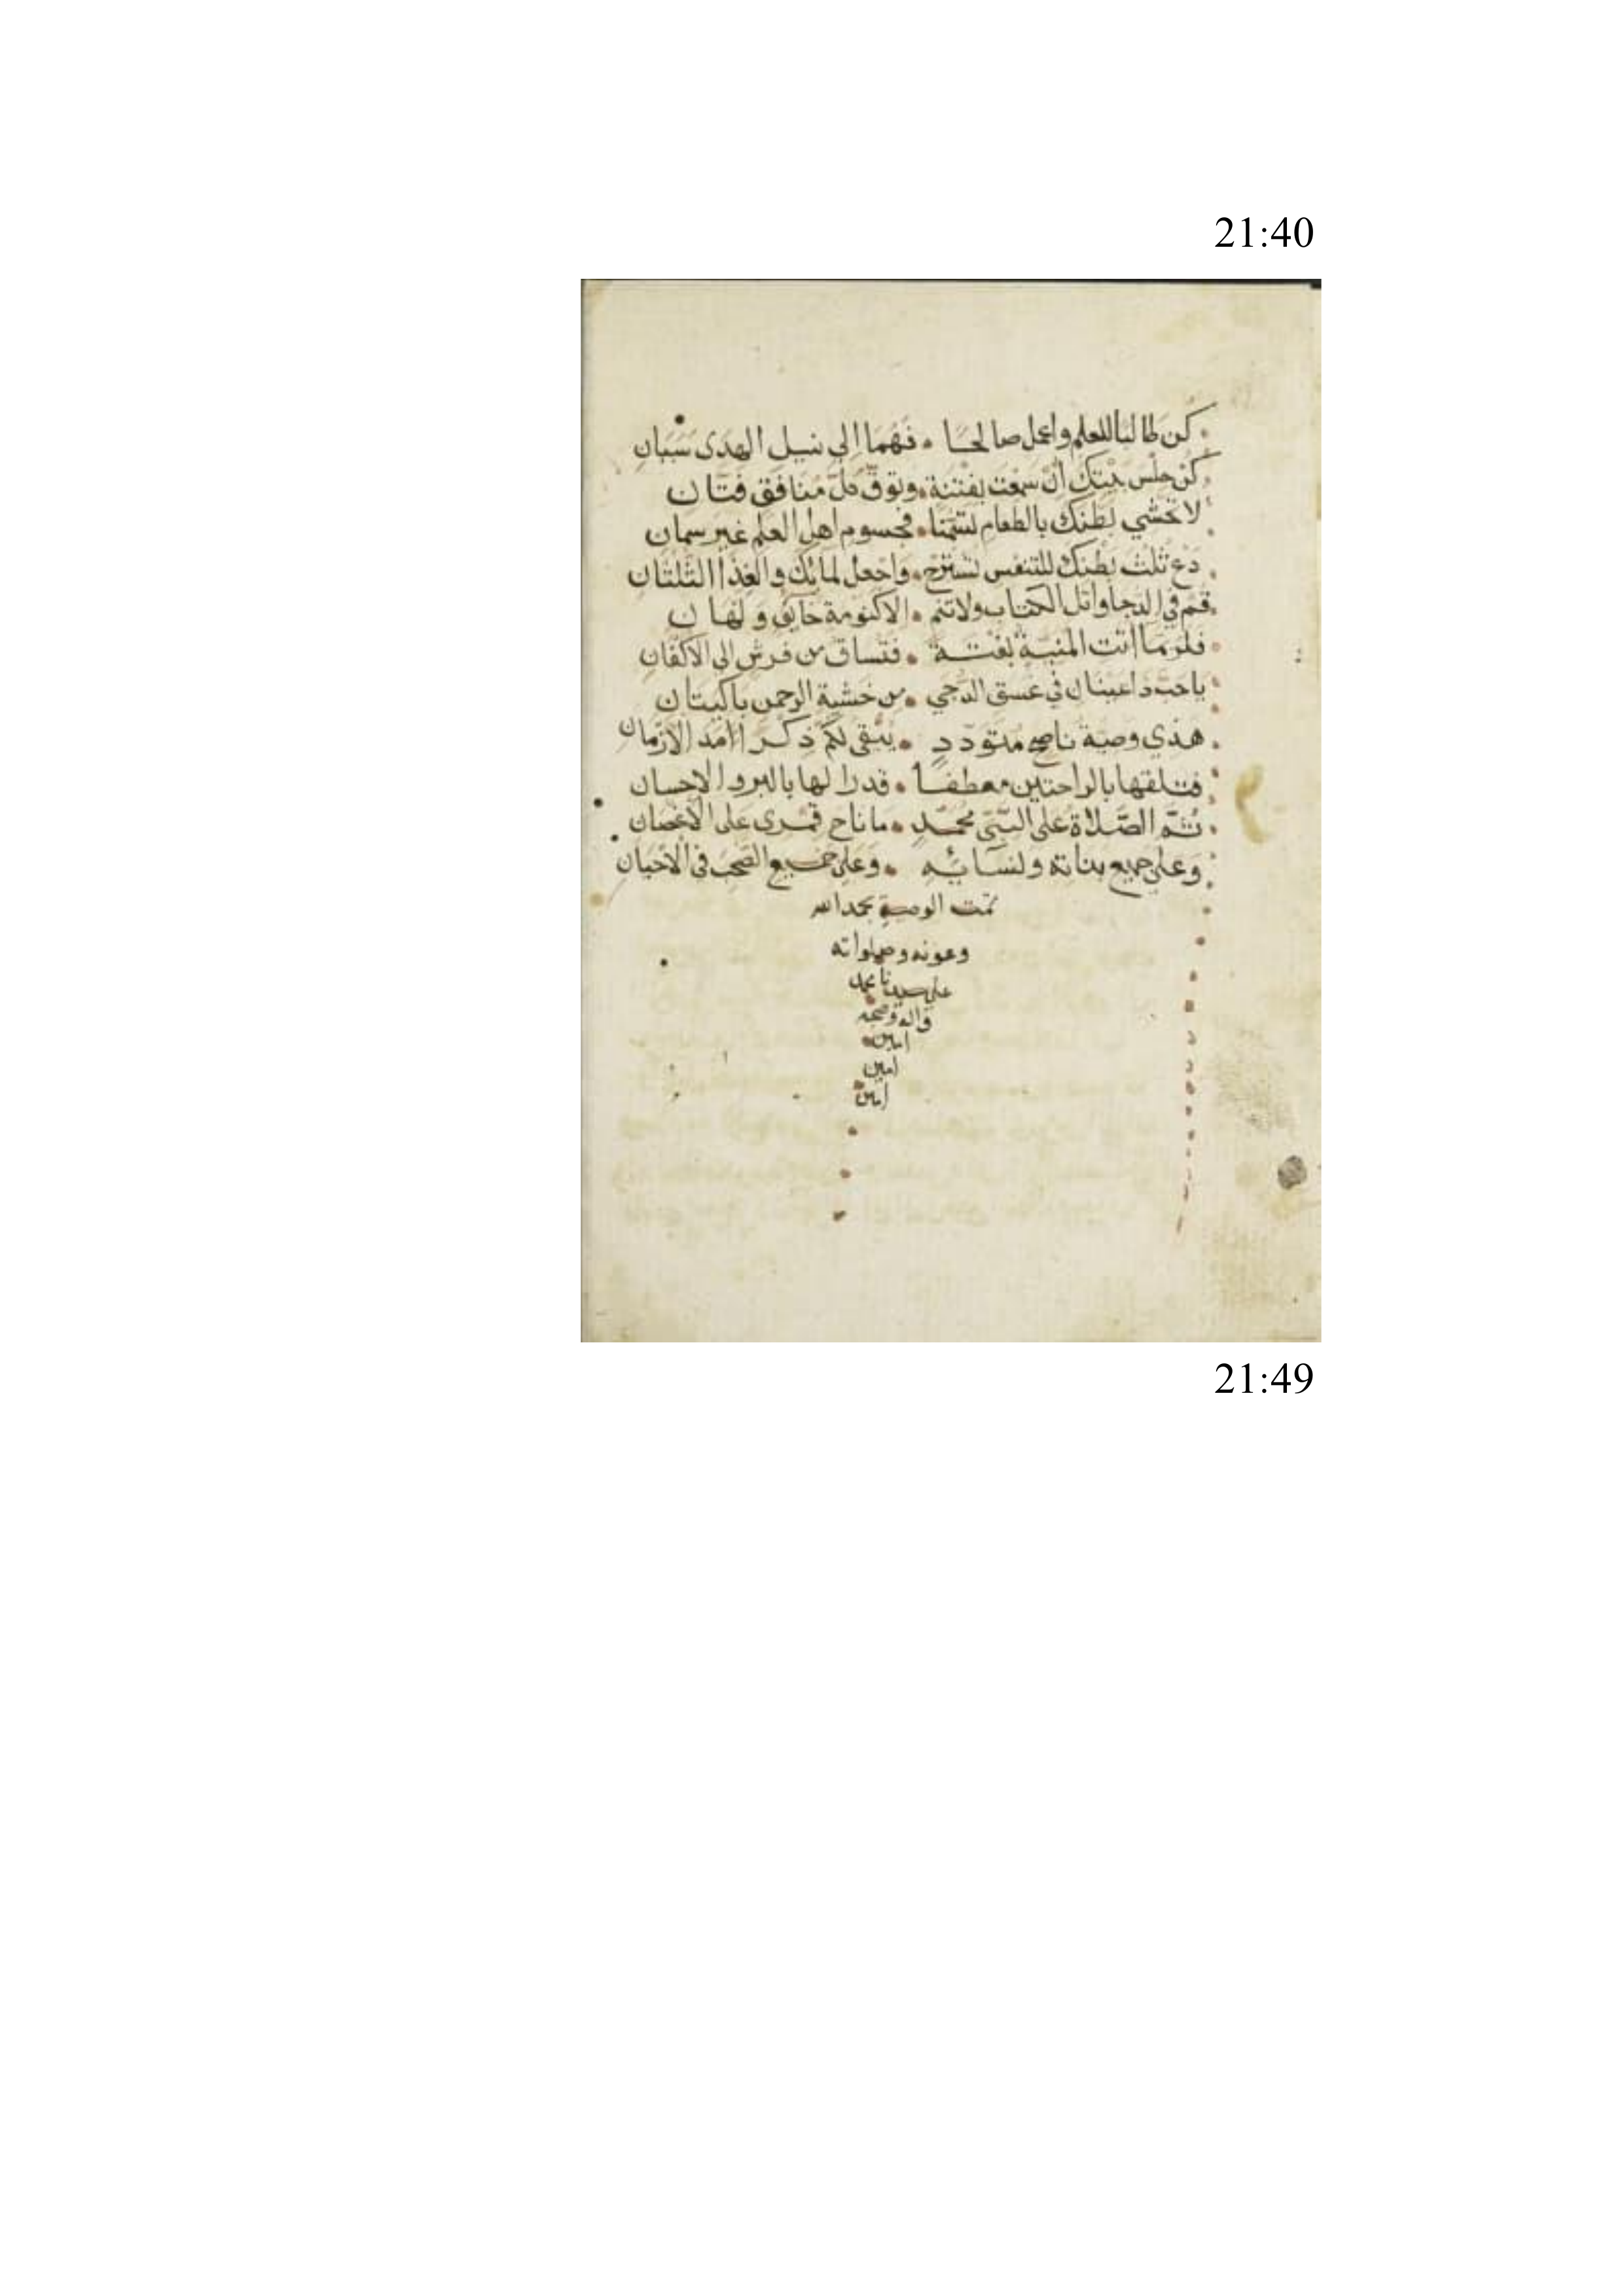 21:40
كن طالبا للعلم واعمل صالحا • فَهُمَا الى نيل الهدى سَبَبان
كن حلس بيتك ان سمعت بفتنة • وتوقّ كلّ منافق فتّان
لا تحشي بطنك بالطعام لتسمنا • فجسوم اهل العلم غير سمان
دع ثلث بطنك للتنفس تسترح • واجعل لمائك والغذا الثلثان
قم في الدجا واتل الكتاب ولا تنم • الا كنومة خائف ولهان
فلربما اتت المنية بغتة • فتساق من فرش الى الاكفان
يا حبذا عينان في غسق الدجي • من خشية الرحمن باكيتان
هذي وصية ناصح متودد • يبقى لكم ذكرا امد الازمان
فتلقها بالراحتين معطفا • قدرا لها بالبر والاحسان
ثم الصّلاة على النبيّ محمّدٍ • ما ناح قمرى على الاغصان
وعلى جميع بناته ونسائه • وعلى جميع الصحب فى الاحيان
تمت الوصية بحمد الله
وعونه وصلواته
على سيدنا محمد
واله وصحبه
امين
امين
امين
21:49